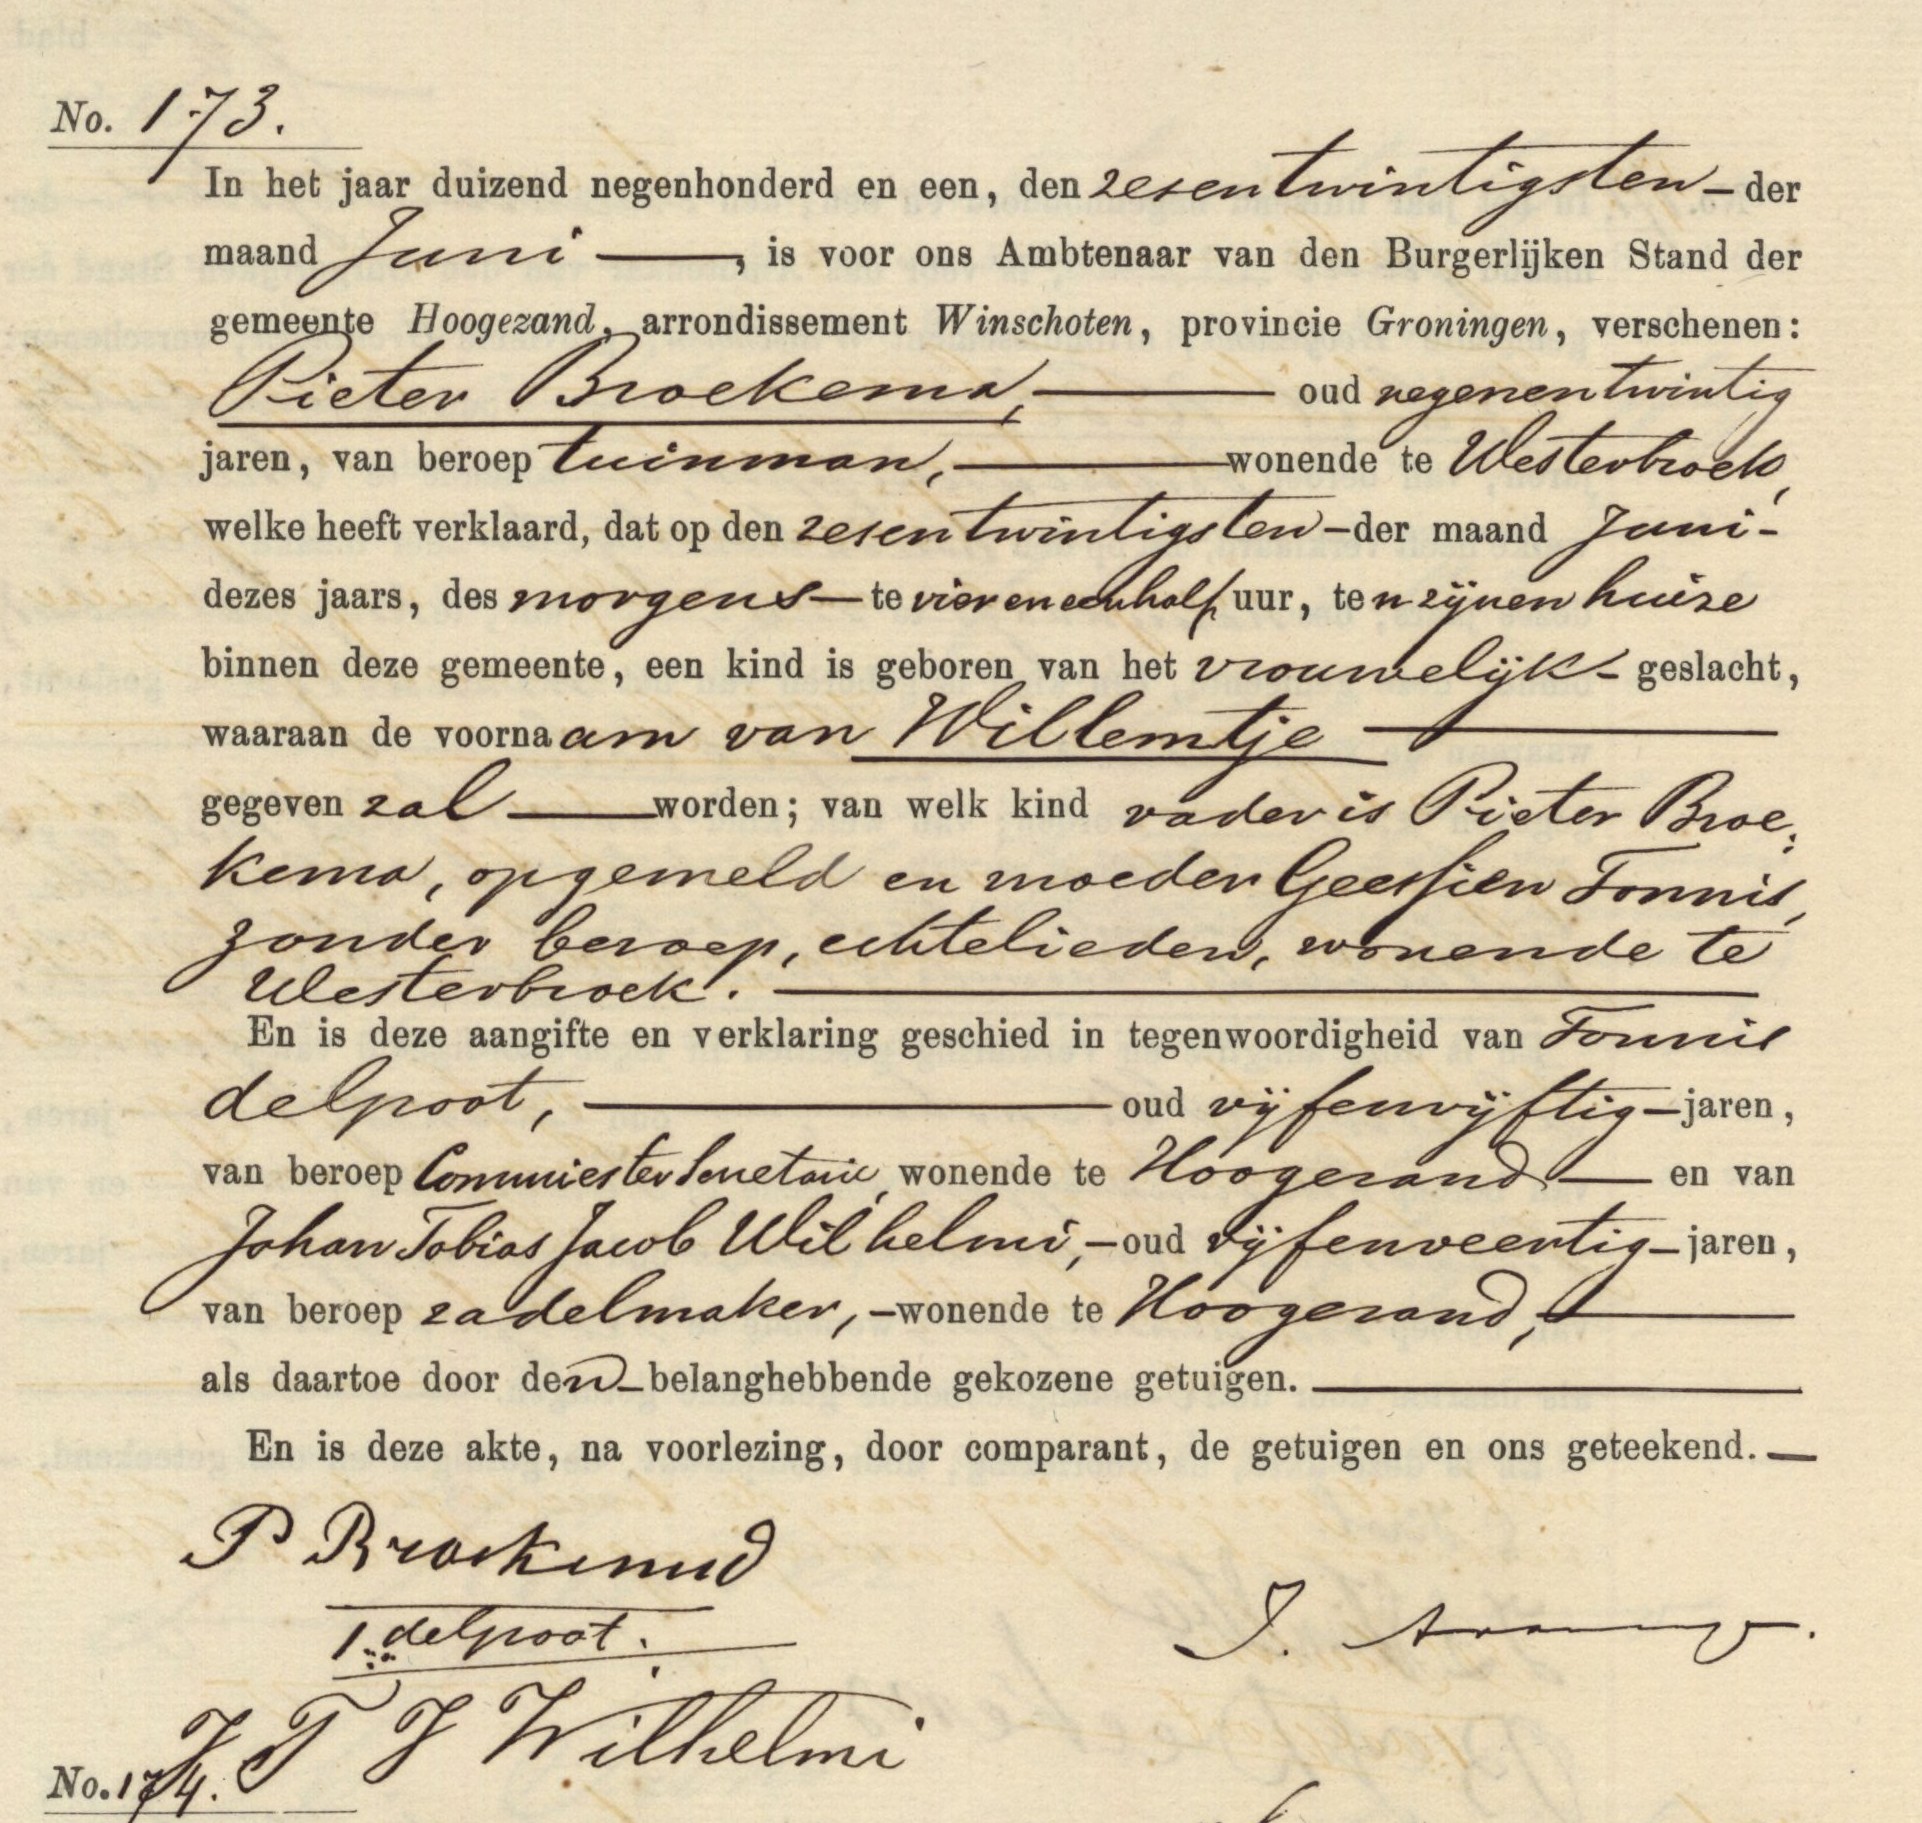 No. 173.
In het jaar duizend negenhonderd en een, den zesentwintigsten – der
maand Juni —, is voor ons Ambtenaar van den Burgerlijken Stand der
gemeente Hoogezand, arrondissement Winschoten, provincie Groningen, verschenen:
Pieter Broekema, — oud negenentwintig
jaren, van beroep tuinman, — wonende te Westerbroek,
welke heeft verklaard, dat op den zesentwintigsten – der maand Juni –
dezes jaars, des morgens — te vier en een half uur, ten zijnen huize
binnen deze gemeente, een kind is geboren van het vrouwelijk – geslacht,
waaraan de voornaam van Willemtje —
gegeven zal — worden; van welk kind vader is Pieter Broe:
kema, opgemeld en moeder Geessien Tonnis,
zonder beroep, echtelieden, wonende te
Westerbroek. —
En is deze aangifte en verklaring geschied in tegenwoordigheid van Tonnis
delpoot, — oud vijfenvijftig – jaren,
van beroep Commies ter Secretarie, wonende te Hoogezand — en van
Johan Tobias Jacob Wilhelmi, – oud vijfenveertig – jaren,
van beroep zadelmaker, – wonende te Hoogezand, —
als daartoe door den – belanghebbende gekozene getuigen. —
En is deze akte, na voorlezing, door comparant, de getuigen en ons geteekend. —
P Broekema
T. delpoot.
J.
J T J Wilhelmi
No. 174.